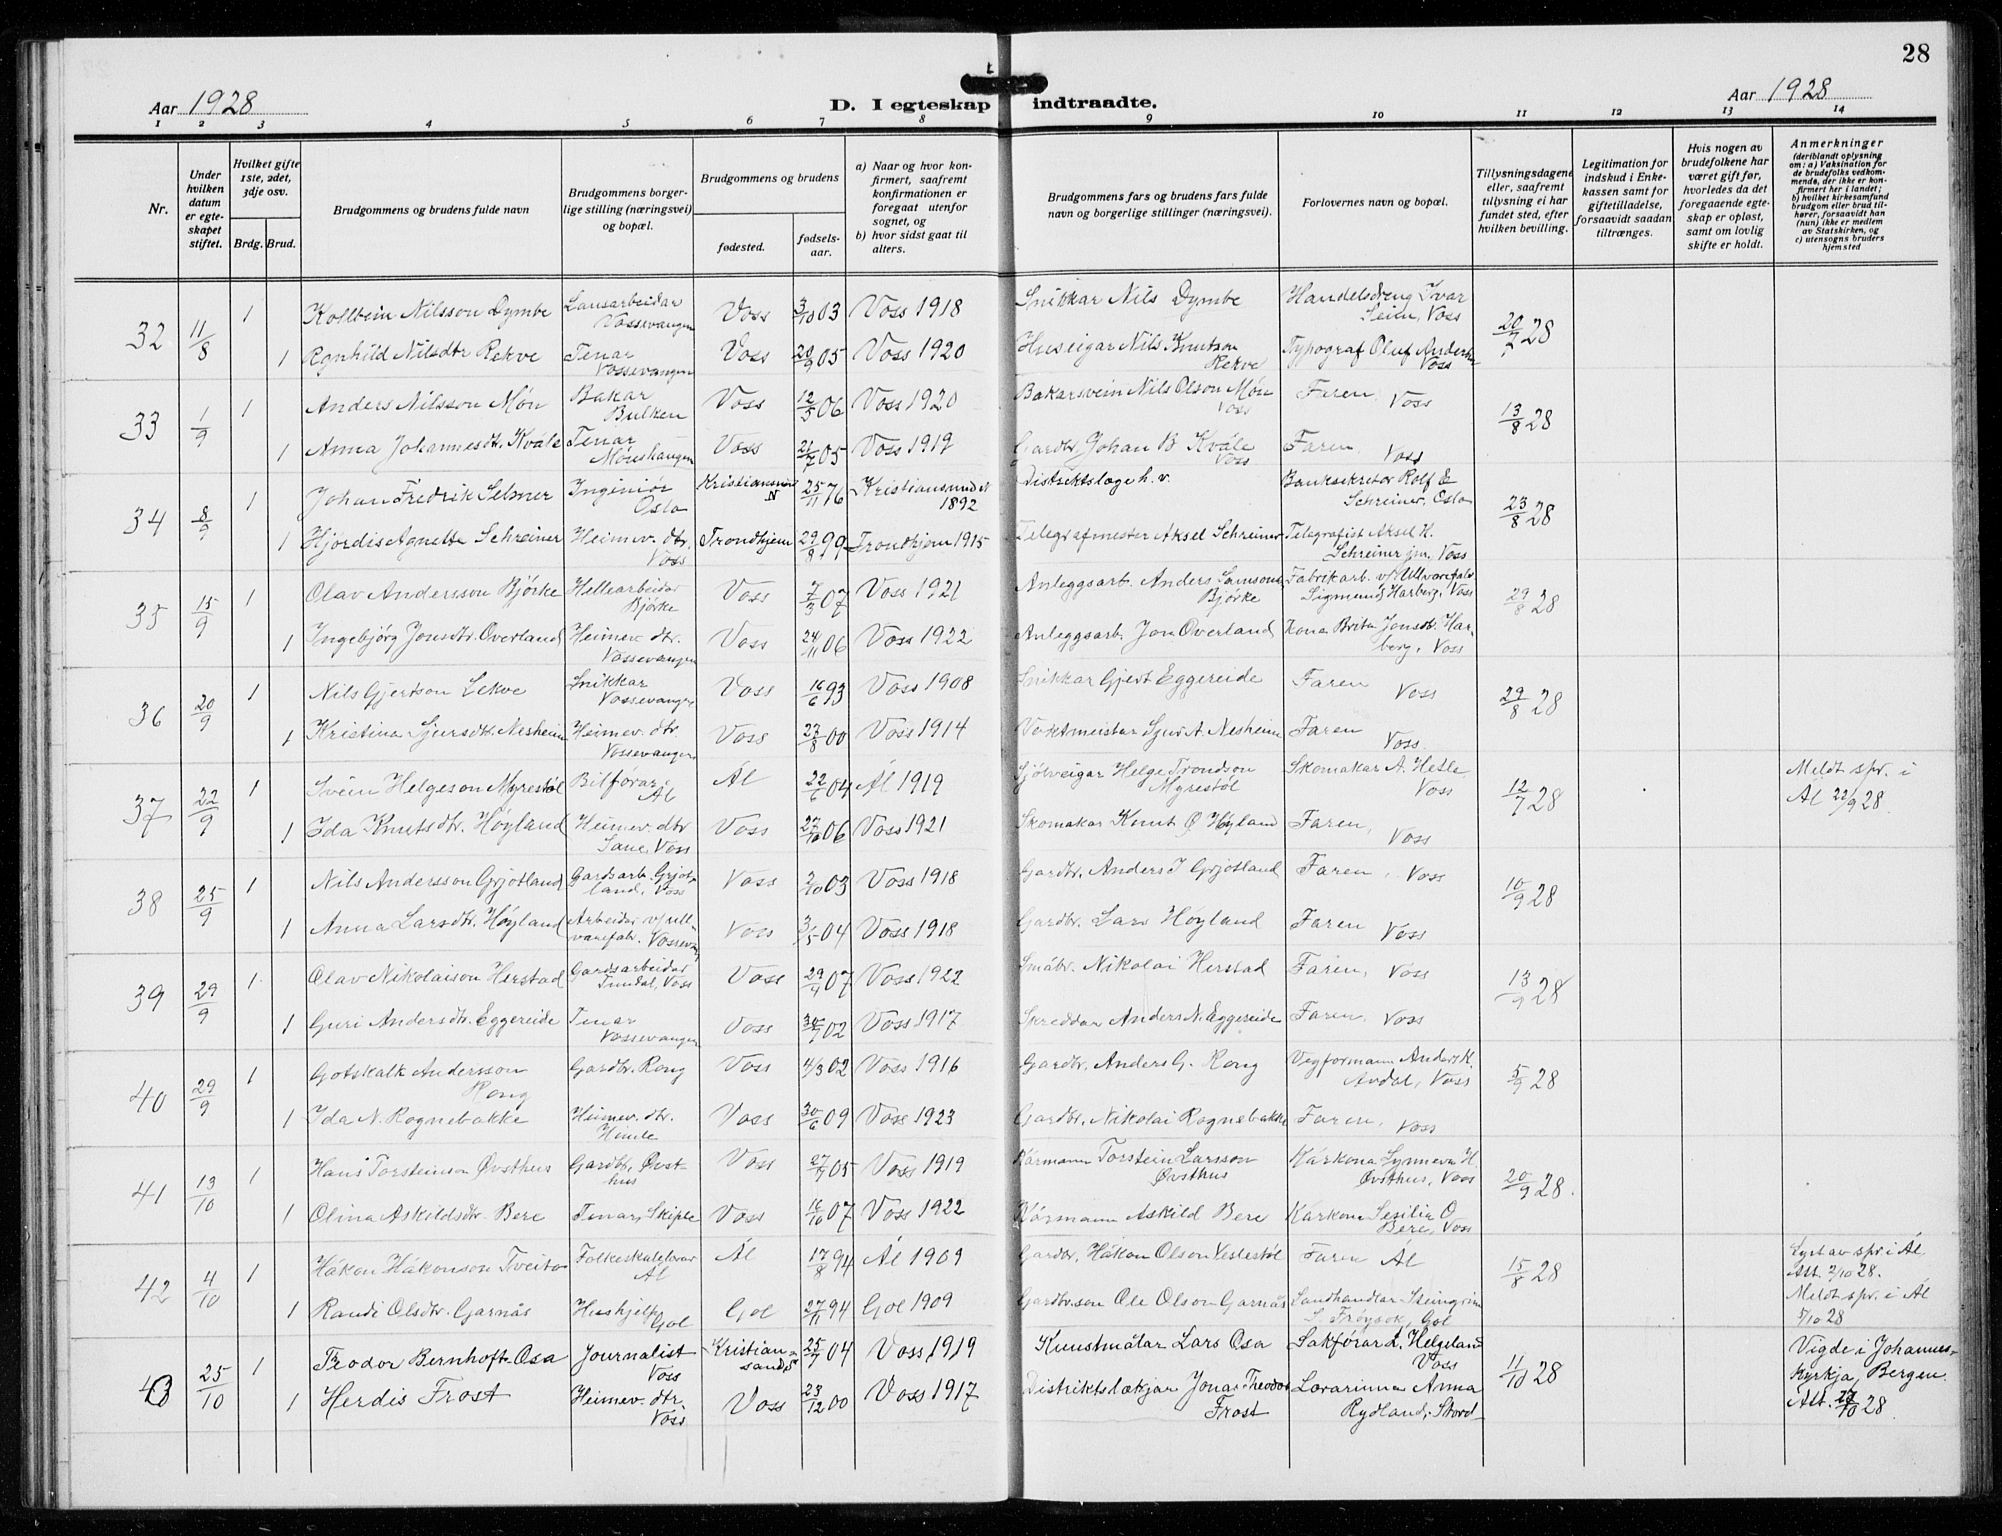 28
Aar 1928
D. I egteskap indtraadte.
Aar 1928
1 2 3 4 5 6 7 8 9 10 11 12 13 14
Nr.
Under hvilken datum er egteskapet stiftet.
Hvilket gifte 1ste, 2det, 3dje osv.
Brdg. Brud.
Brudgommens og brudens fulde navn
Brudgommens borgerlige stilling (næringsvei) og bopæl.
Brudgommens og brudens
fødested.
fødselsaar.
a) Naar og hvor konfirmert, saafremt konfirmationen er foregaat utenfor sognet, og
b) hvor sidst gaat til alters.
Brudgommens fars og brudens fars fulde navn og borgerlige stillinger (næringsvei).
Forlovernes navn og bopæl.
Tillysningsdagene eller, saafremt tillysning ei har fundet sted, efter hvilken bevilling.
Legitimation for indskud i Enkekassen samt for giftetilladelse, forsaavidt saadan tiltrænges.
Hvis nogen av brudefolkene har været gift før, hvorledes da det foregaaende egteskap er opløst, samt om lovlig skifte er holdt.
Anmerkninger (deriblandt oplysning om: a) Vaksination for de brudefolks vedkommende, der ikke er konfirmert her i landet; b) hvilket kirkesamfund brudgom eller brud tilhører, forsaavidt han (hun) ikke er medlem av Statskirken, og c) utensogns bruders hjemsted
32 11/8 1 Kolbein Nilsson Dymbe Lausarbeidar Vossevangen Voss 3/10 03 Voss 1918 Snikkar Nils Dymbe Handelsdreng Ivar Seim, Voss 20/7 28
1 Ragnhild Nilsdtr Rekve Tenar Vossevangen Voss 20/9 05 Voss 1920 Huseigar Nils Knutson Rekve Typograf Oluf Andersen Voss
33 1/9 1 Anders Nilsson Møn Bakar Bulken Voss 12/5 06 Voss 1920 Bakarsvein Nils Olson Møn Voss Faren, Voss 13/8 28
1 Anna Johannesdtr. Kvåle Tenar Voss 21/7 05 Voss 1919 Gardbr. Johan B Kvåle Voss Faren Voss
34 8/9 1 Johan Fredrik Selmer Ingeniør Oslo Kristiansund N 25/11 76 Kristiansund N 1892 Distriktslæge h. v. Banksekretær Rolf E Schreiner, Oslo 23/8 28
1 Hjørdis Agnette Schreiner Heimev. dtr. Voss Trondhjem 29/8 99 Trondhjem 1915 Telegrafmester Aksel Schreiner Telegrafist Aksel H. Schreiner jnr. Voss
35 15/9 1 Olav Andersson Bjørke Hellearbeidar Bjørke Voss 7/3 07 Voss 1921 Anleggsarb. Anders Samsons. Bjørke Fabrikarb. v/Ullvarefabr. Sigmund Harberg, Voss 29/8 28
1 Ingebjørg Jonsdtr. Overland Heimev. dtr. Vossevangen Voss 24/11 06 Voss 1922 Anleggsarb. Jon Overland Kona Brita Jonsdtr. Harberg, Voss
36 20/9 1 Nils Gjertson Lekve Snikkar Vossevangen Voss 16/6 93 Voss 1908 Snikkar Gjert Eggereide Faren Voss 29/8 28
1 Kristina Sjursdtr. Nesheim Heimev. dtr. Vossevangen Voss 23/8 00 Voss 1914 Vaktmeistar Sjur A. Nesheim Faren Voss.
37 22/9 1 Svein Helgeson Myrestøl Bilførar, Ål Ål 22/6 04 Ål 1919 Sjølveigar Helge Trondson Myrestøl Skomakar A. Hesle Voss 12/7 28 Meldt spr. i Ål 22/9 28.
1 Ida Knutsdtr. Høyland Heimev. dtr Voss Voss 06 Voss 1921 Skomakar Knut Ø Høyland Faren, Voss
38 25/9 1 Nils Andersson Grjotland Gardsarb. Grjotland, Voss Voss 2/10 03 Voss 1918 Gardbr. Anders I Grjotland Faren, Voss 10/9 28
1 Anna Larsdtr. Høyland Arbeidar v/ullvarefabr. Vossev. Voss 3/5 04 Voss 1918 Gardbr. Lars Høyland Faren Voss
39 29/9 1 Olav Nikolaison Herstad Gardsarbeidar Voss Voss 29/4 07 Voss 1922 Småbr. Nikolai Herstad Faren, Voss 13/9 28
1 Guri Andersdtr. Eggereide Tenar Vossevangen Voss 02 Voss 1917 Skreddar Anders N. Eggereide Faren, Voss
40 29/9 1 Gotskalk Andersson Rong Gardbr. Rong Voss 4/3 02 Voss 1916 Gardbr. Anders G. Rong Vegformann Anders K. Avdal, Voss 5/9 28
1 Ida N. Rognebakke Heimev. dtr. Himle Voss 30/6 09 Voss 1923 Gardbr. Nikolai Rognebakke Faren, Voss
41 13/10 1 Hans Torsteinson Øvsthus Gardbr. Øvsthus Voss 27/9 05 Voss 1919 Kårmann Torstein Larsson Øvsthus Kårkona Synneva H. Øvsthus, Voss 20/9 28.
1 Olina Askildsdtr. Bere Tenar, Skiple Voss 16/10 07 Voss 1922 Kårmann Askild Bere Kårkona Sesilia O Bere, Voss
42 4/10 1 Håkon Håkonson Tveito Folkeskulelærar Ål Ål 17/8 94 Ål 1909 Gardbr. Håkon Olson Veslestøl Faren Ål 15/8 28 Lyst av spr. i Ål. Att. 2/10 28. Meldt spr. i Ål 5/10 28
1 Randi Olsdtr. Garnås Hushjelp Gol Gol 27/11 94 Gol 1909 Gardbr.son Ole Olson Garnås Landhandlar Steingrim S. Frøysok, Gol
43 25/10 1 Teodor Bernhoft-Osa Journalist Voss Kristiansand S 25/7 04 Voss 1919 Kunstmålar Lars Osa Sakførar L. Helgeland Voss 11/10 28 Vigde i Johanneskyrkja, Bergen. Att. 28
1 Herdis Frost Heimev. dtr. Voss Voss 23/12 00 Voss 1917 Distriktslækjar Jonas Theodor Frost Lærarinna Anna Rydland, Stord